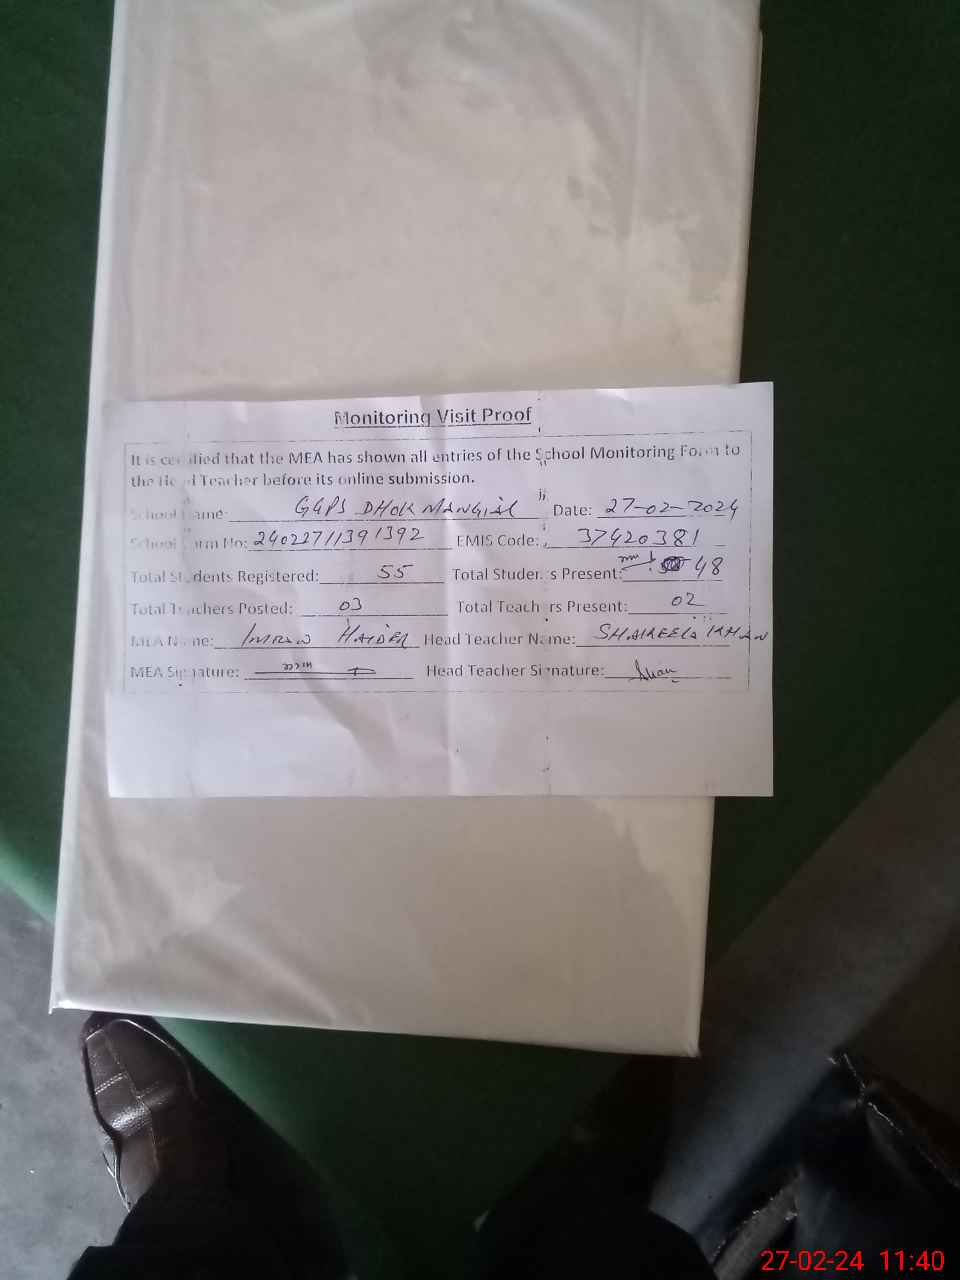 Monitoring Visit Proof
It is certified that the MEA has shown all entries of the School Monitoring Form to
the Head Teacher before its online submission.
School Name: GGPS DHOK MANGIAL Date: 27-02-2024
School Form No: 24022711391392 EMIS Code: 37420381
Total Students Registered: 55 Total Students Present: 48
Total Teachers Posted: 03 Total Teachers Present: 02
MEA Name: IMRAN HAIDER Head Teacher Name: SHAKEELA KHAN
MEA Signature: Head Teacher Signature:
27-02-24 11:40